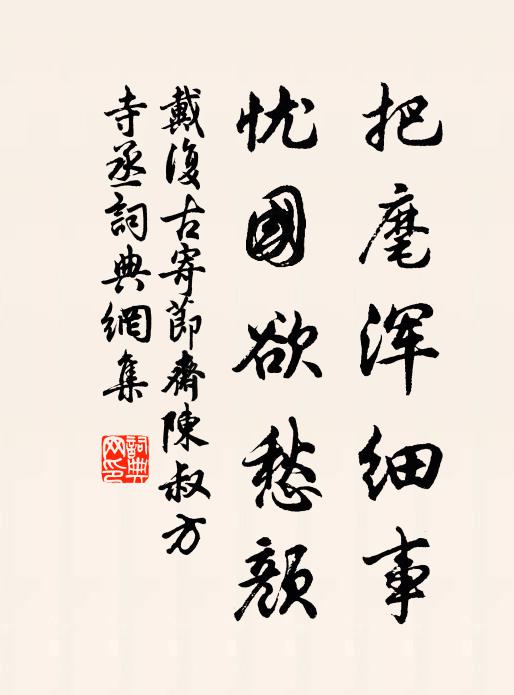 把麾浑细事
忧國欲愁颜
戴復古寄節齋陳叔方
寺丞詞典網集
詞典网印